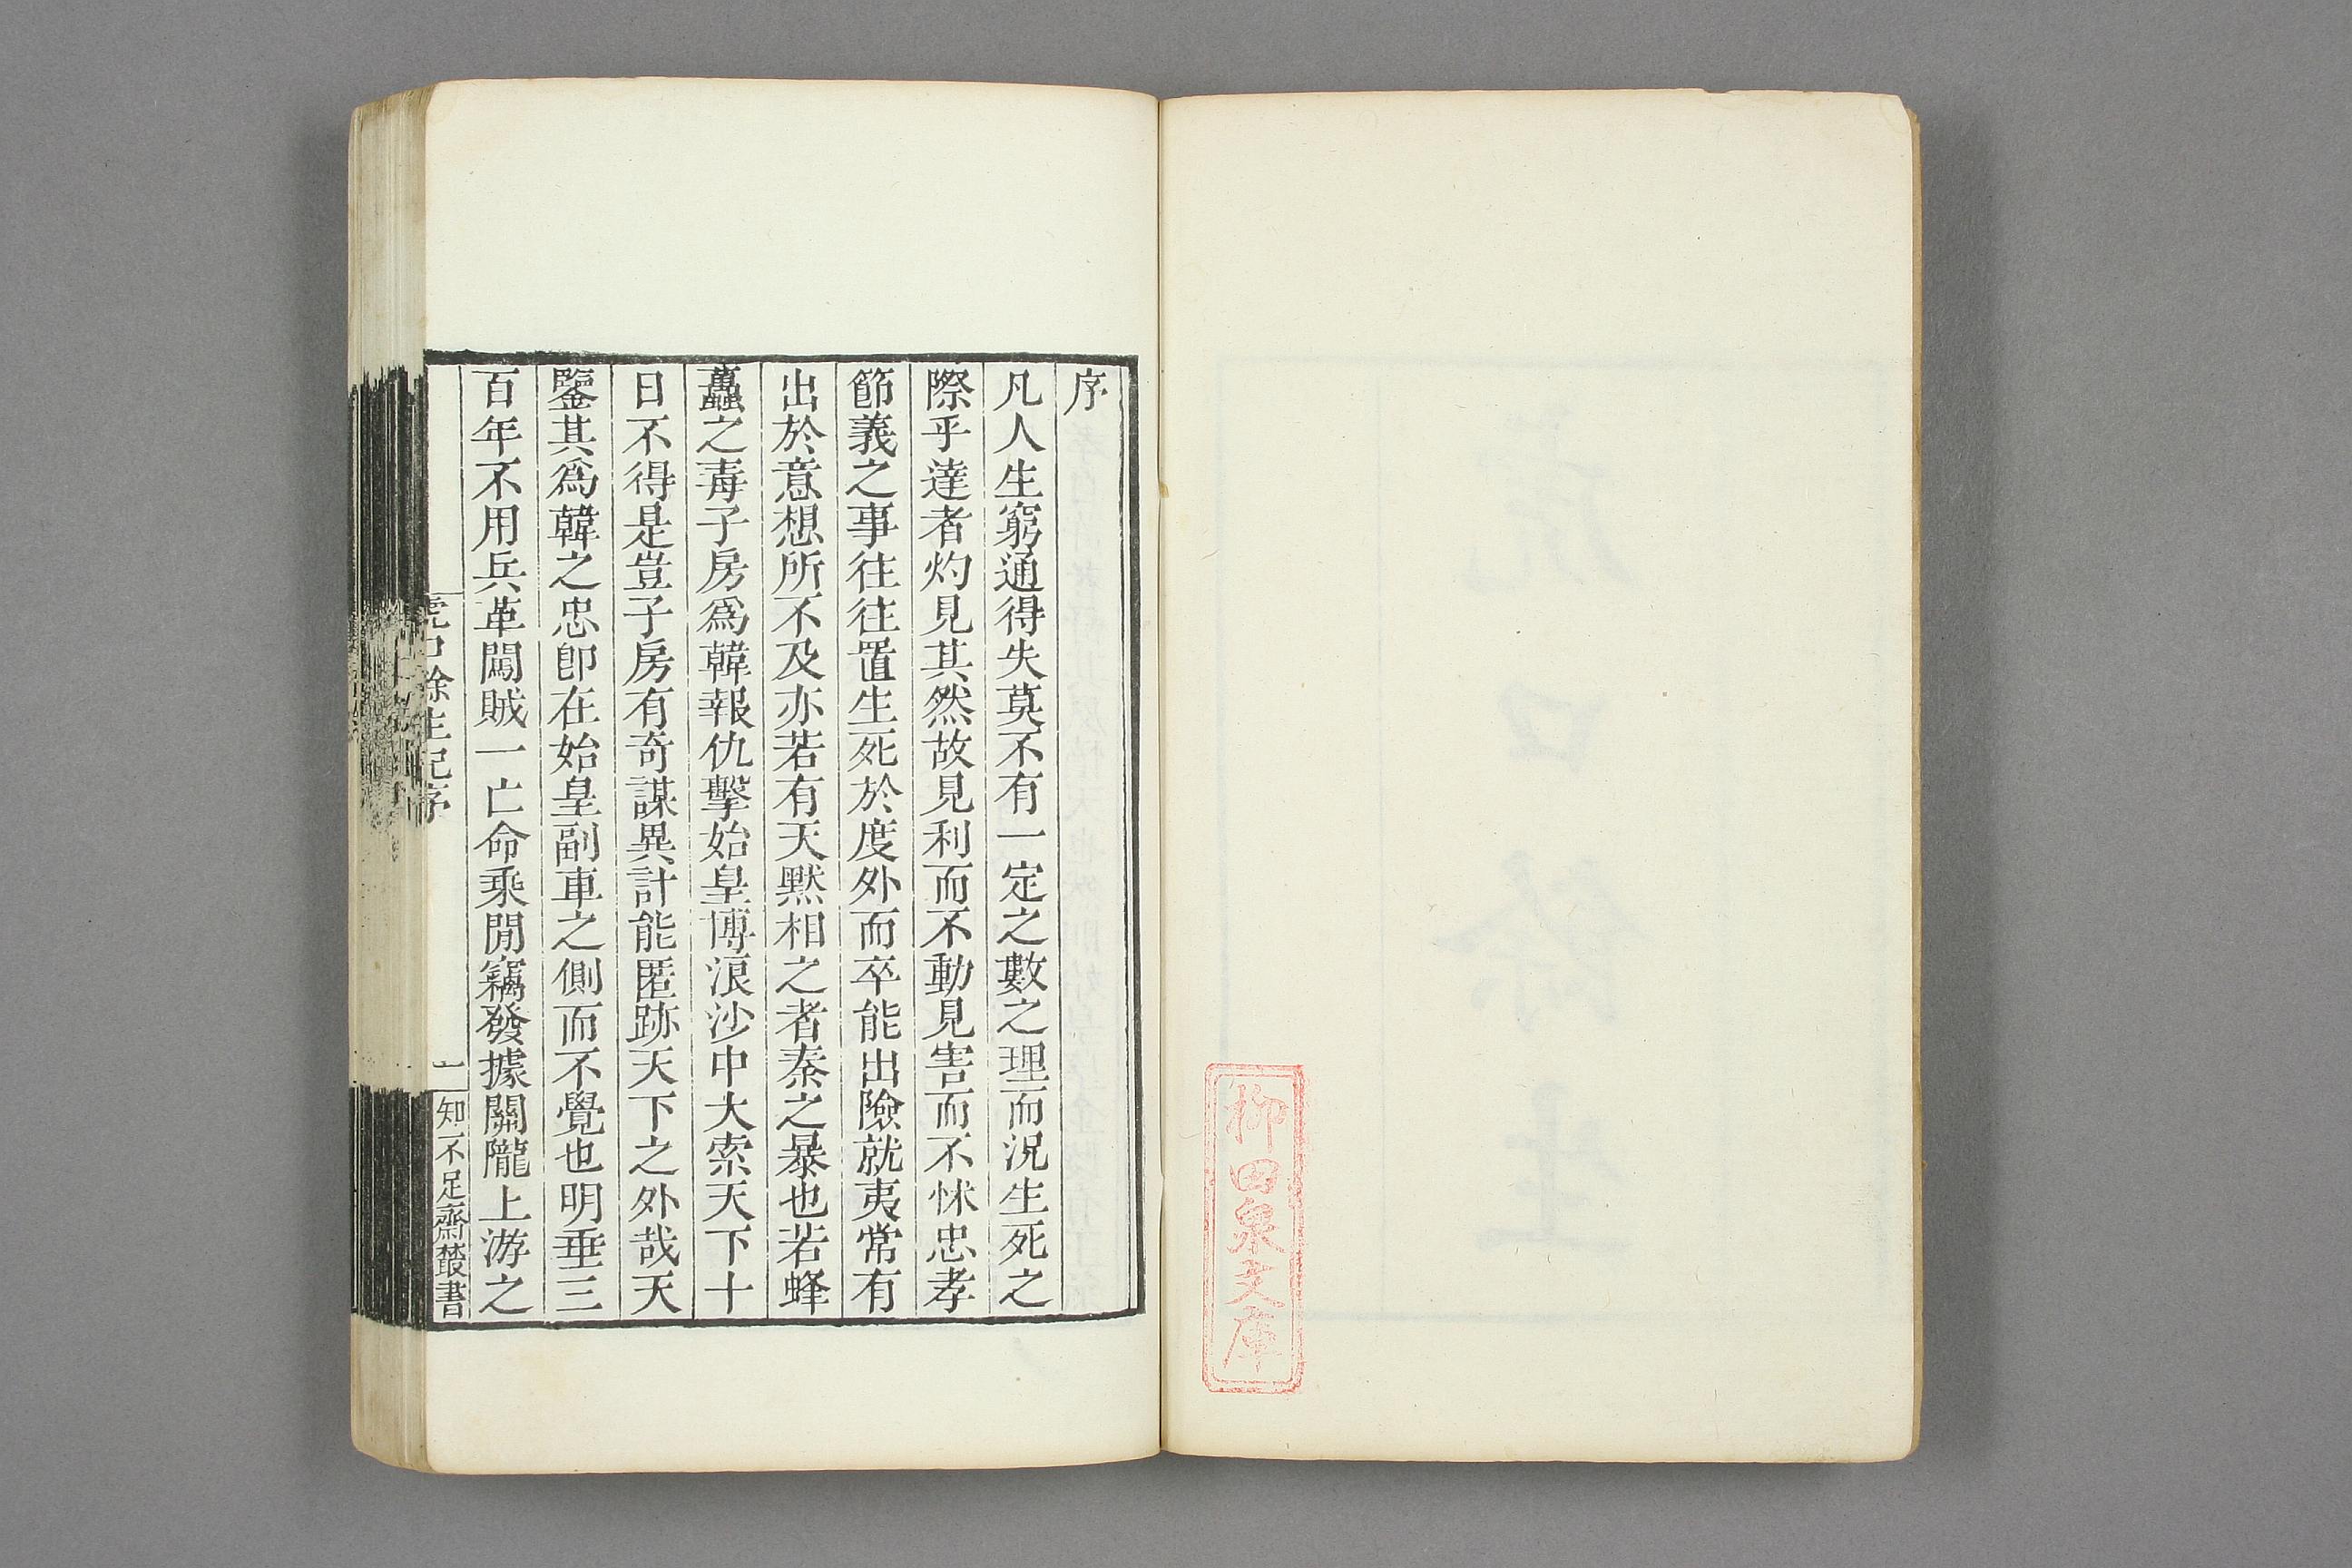 柳田泉文庫
序
凡人生窮通得失莫不有一定之數之理而況生死之
際乎達者灼見其然故見利而不動見害而不怵忠孝
節義之事往往置生死於度外而卒能出險就夷常有
出於意想所不及亦若有天默相之者秦之暴也若蜂
蠆之毒子房爲韓報仇擊始皇博浪沙中大索天下十
日不得是豈子房有奇謀異計能匿跡天下之外哉天
鑒其爲韓之忠卽在始皇副車之側而不覺也明垂三
百年不用兵革闖賊一亡命乘閒竊發據關隴上游之
虎口餘生記序
一
知不足齋叢書